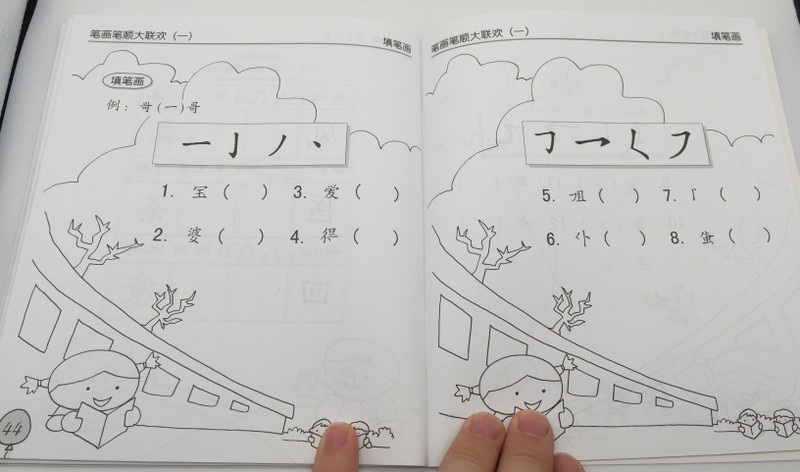 笔画笔顺大联欢（一）
填笔画
填笔画
例：哥(一)哥
一 亅 丿 丶
1. 宝（ ） 3. 爱（ ）
2. 婆（ ） 4. 得（ ）
44
笔画笔顺大联欢（一）
填笔画
5. （ ） 7. （ ）
6. 仆（ ） 8. （ ）